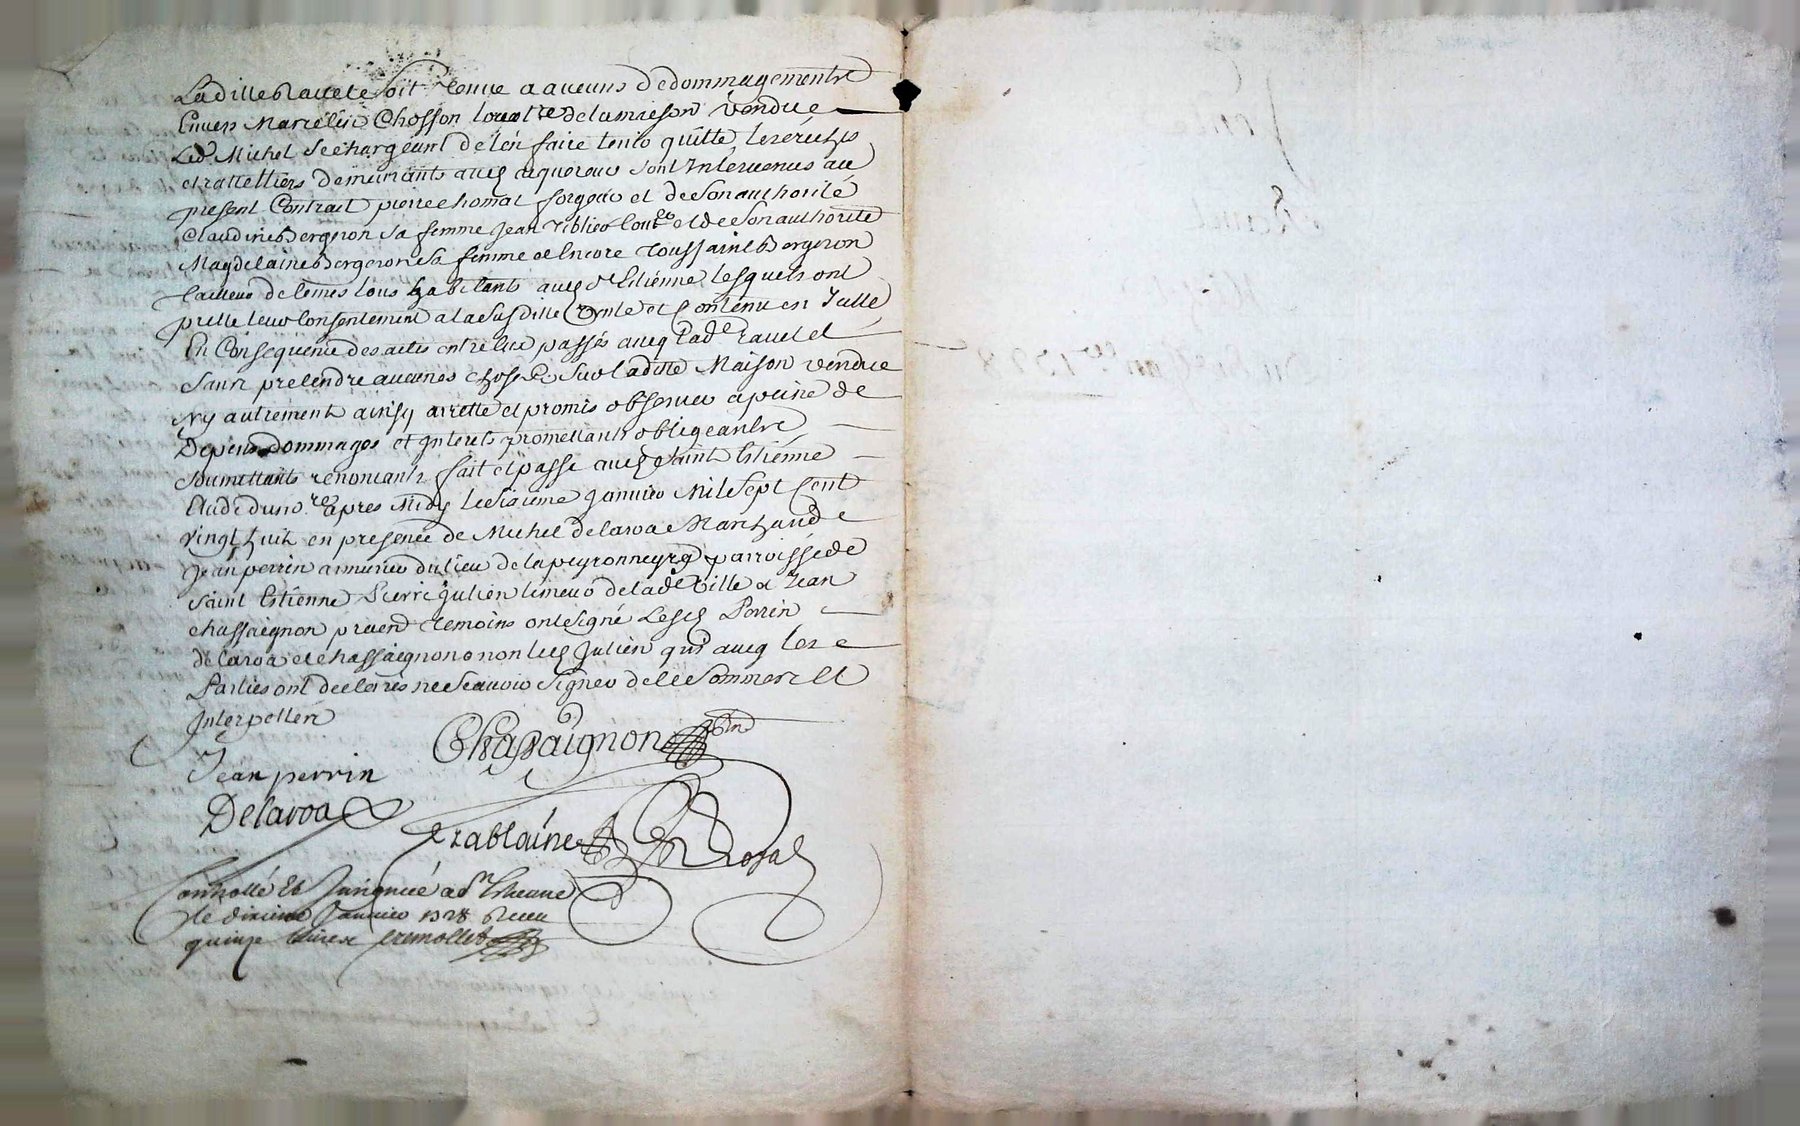 Laditte Ravet et soit tenue a aucuns dedommagements
Envers Marcelin Chosson locatre de la maison vendue
Led. Michel se chargeant de len faire tenir quitte, les
et rattelliers demeurants aud acquereur sont Intervenus au
present Contrat pierre chomat forgeur et de son authorité
Claudine Bergeron sa femme Jean et de son authorité
Magdelaine Bergeron sa femme et Encore Toussaint Bergeron
tailleur de limes tous habitants aud St Etienne, lesquels ont
prette leur Consentement a la susditte vente et Contenu en Icelle
En Consequence des actes entre eux passés avecq lade ravet et
sans pretendre aucunes choses sur ladite Maison vendue
ny autrement ainsy arretté et promis observer a peine de
Depens dommages et Interets promettants obligeants
soumettants renonçants fait et passé aud Saint Etienne
Etude du nore apres Midy le sixieme Janvier Mil Sept Cent
vingt huit en presence de Michel delaroa Marchand
Jean perrin armurier du lieu de la peyronneyre parroisse de
Saint Etienne Pierre Julien limeur de lade Ville et Jean
chassaignon temoins ont signé Lesd Perrin
delaroa et chassaignon non led Julien qui avecq les
Parties ont declarés ne scavoir signer de ce sommes et
Interpellés
Chassaignon
Jean perrin
Delaroa
Trablaine
Royal
Controllé Et Insinué a St Etienne
le dixieme Janvier 1728 Receu
quinze livres